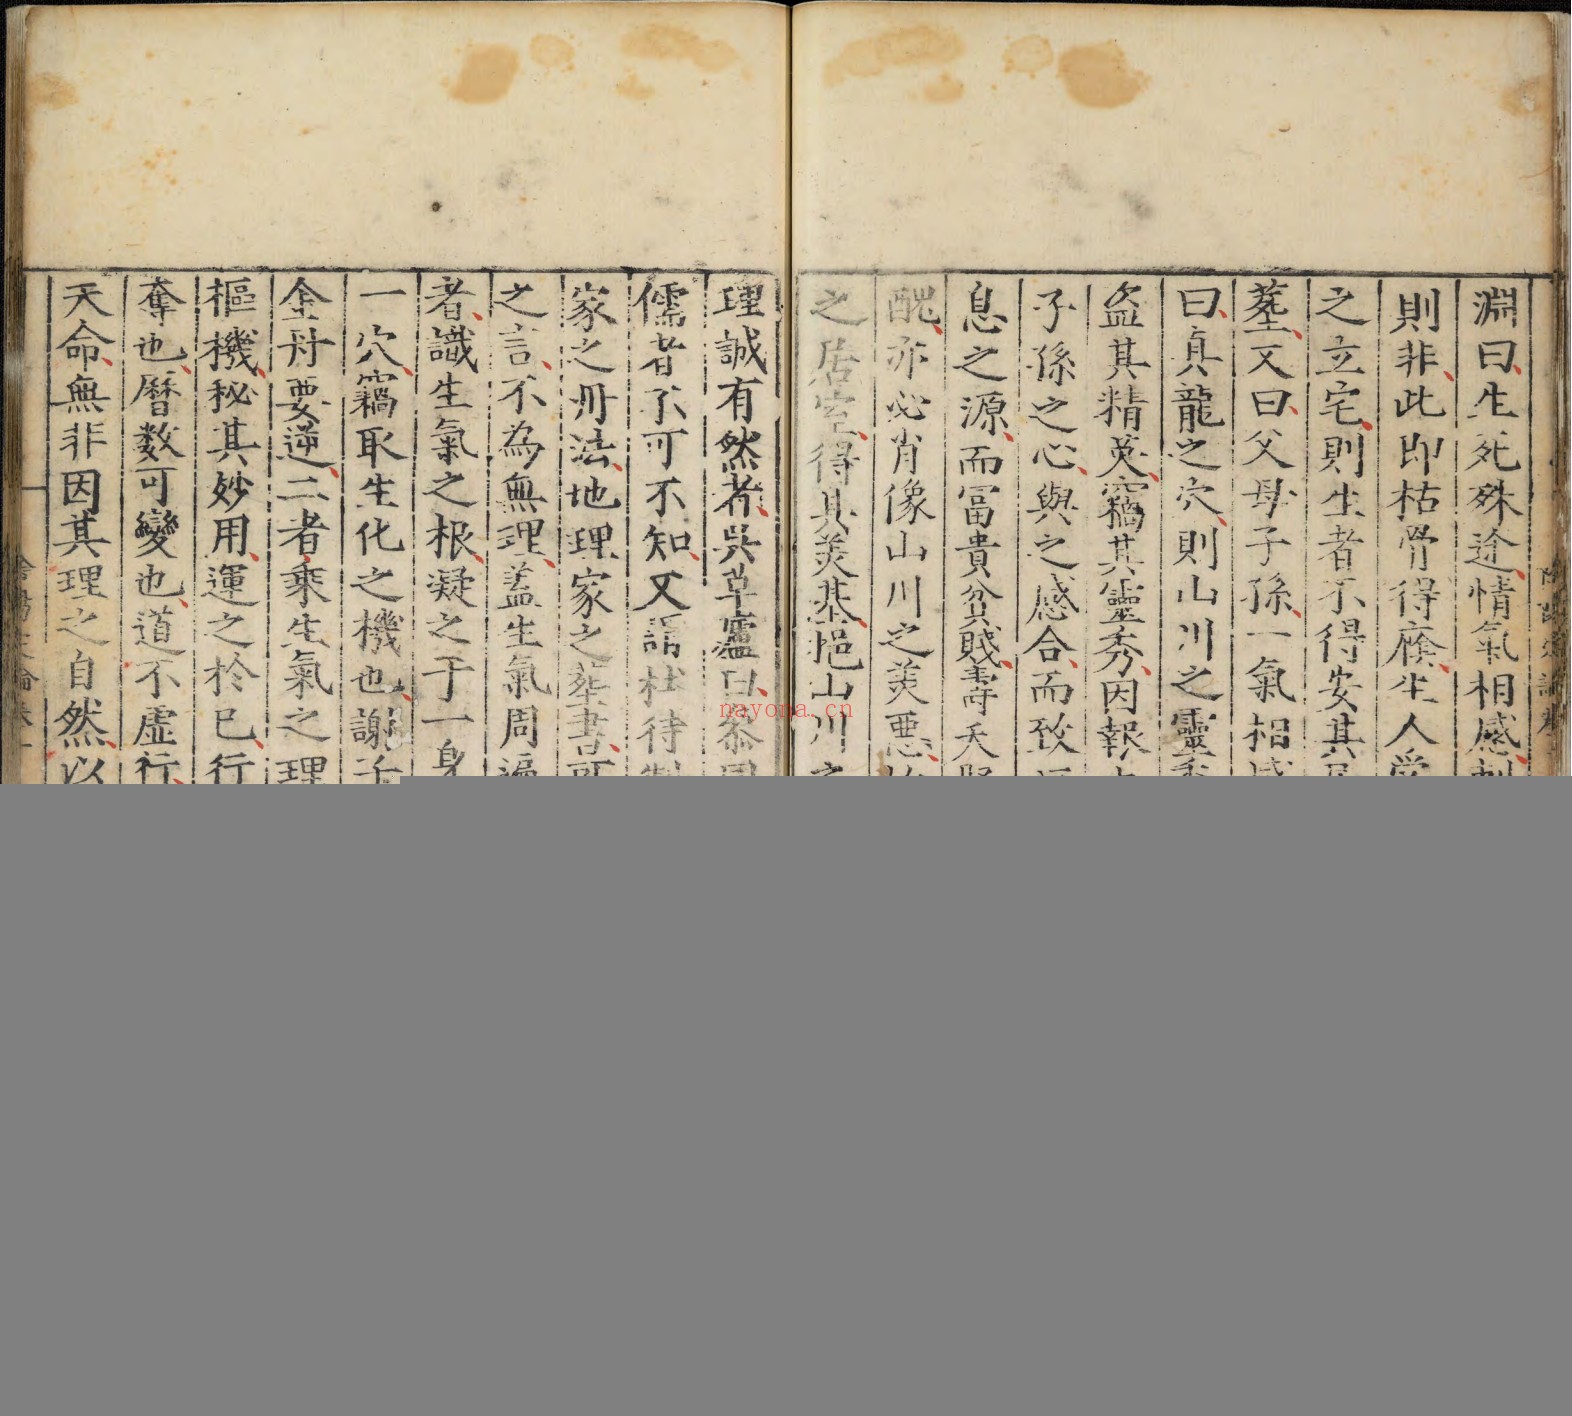 淵曰生死殊途情氣相感
則非此即枯骨得廕生人受
之立宅則生者不得安其居
塟又曰父母子孫一氣相感
曰真龍之穴則山川之靈秀
盜其精英竊其靈秀因報
子孫之心與之感合而致
息之源而富貴貧賤壽夭賢
醜亦必肖像山川之美惡
之居室得其美基挹山川之
理誠有然者吳草廬曰葬
儒者不可不知又謂枯待
家之丹法地理家之塟書可
之言不為無理蓋生氣周遍
者識生氣之根凝之于一身
一穴竊取生化之機也謝子
金丹要逆二者乘生氣之理
樞機秘其妙用運之於已行
奪也曆數可變也道不虛行
天命無非因其理之自然以
nayona.cn